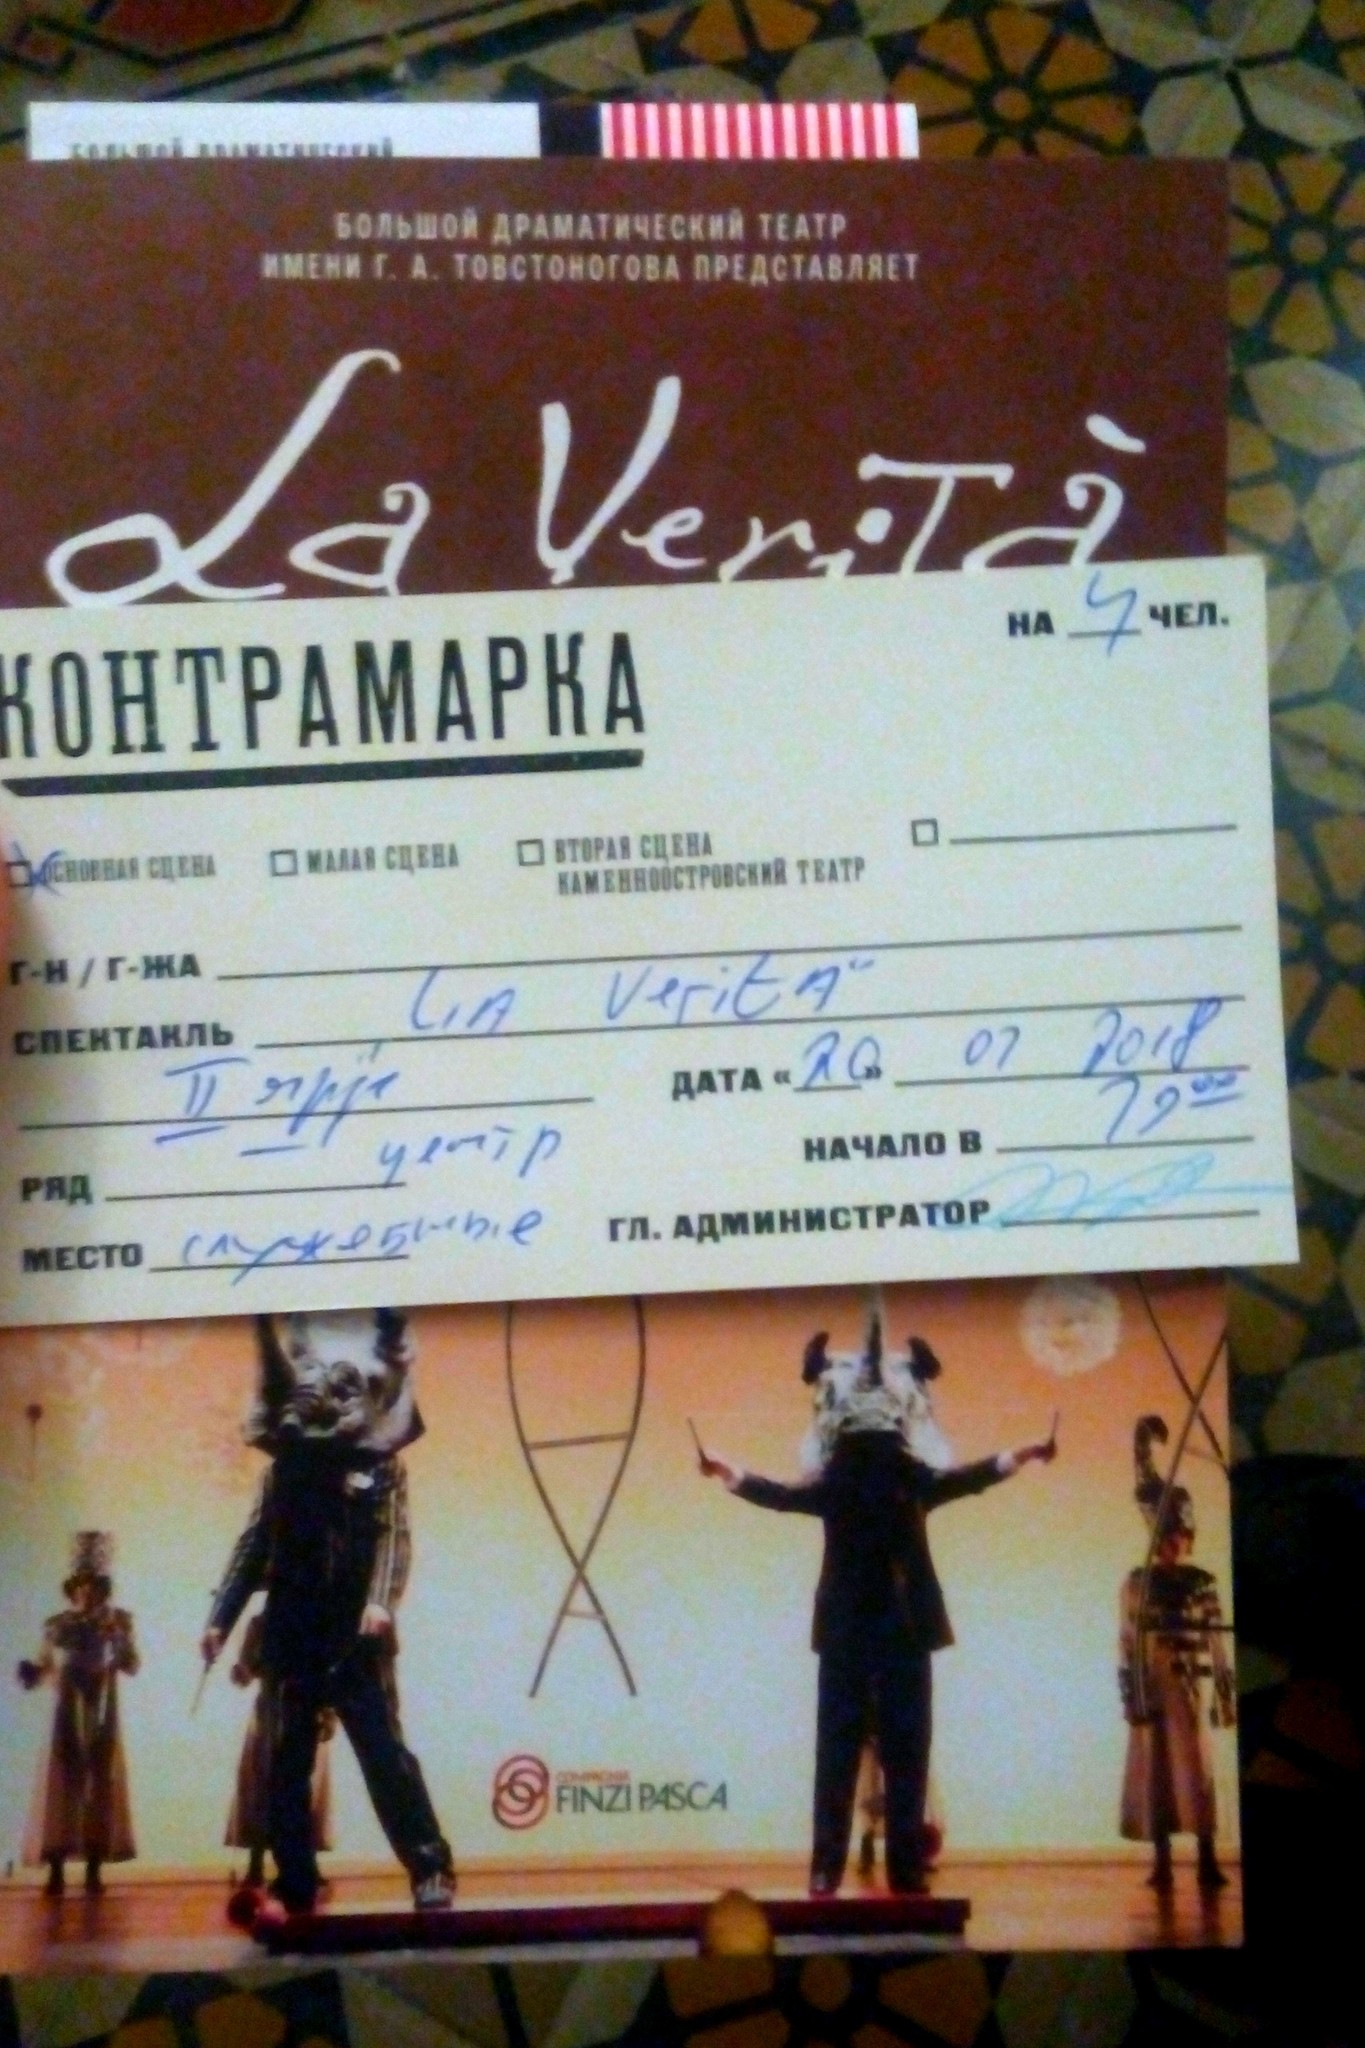 БОЛЬШОЙ ДРАМАТИЧЕСКИЙ
БОЛЬШОЙ ДРАМАТИЧЕСКИЙ ТЕАТР
ИМЕНИ Г. А. ТОВСТОНОГОВА ПРЕДСТАВЛЯЕТ
La Verità
НА 4 ЧЕЛ.
КОНТРАМАРКА
ОСНОВНАЯ СЦЕНА МАЛАЯ СЦЕНА ВТОРАЯ СЦЕНА
КАМЕННООСТРОВСКИЙ ТЕАТР
Г-Н / Г-ЖА
СПЕКТАКЛЬ "LA VeritA"
II ярус ДАТА «20» 07 2018
центр НАЧАЛО В 19 00
РЯД
МЕСТО служебные ГЛ. АДМИНИСТРАТОР
COMPAGNIA
FINZI PASCA